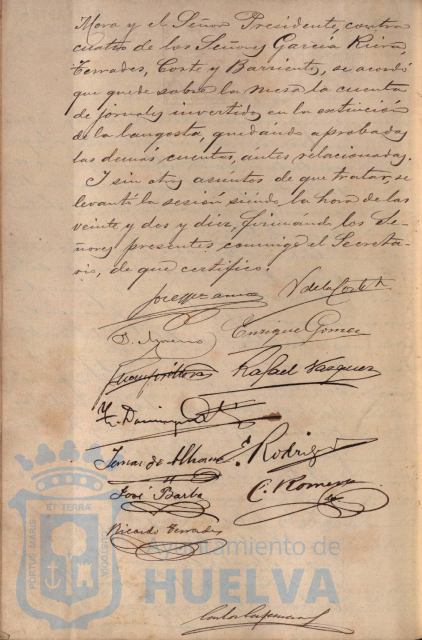 Mora y el Señor Presidente, contra
cuatro de los Señores García Riera,
Terrades, Corte y Barrientos, se acordó
que quede sobre la mesa la cuenta
de jornales invertidos en la extinción
de la langosta, quedando aprobadas
las demás cuentas, antes relacionadas.
Y sin otros asuntos de que tratar, se
levantó la sesión siendo la hora de las
veinte y dos y diez, firmando los Se-
ñores presentes conmigo el Secreta-
rio, de que certifico.
V de la Corte
Enrique Gomez
Rafael Vazquez
E. Rodrig
José Barba
C. Romero
Ricardo Terrades
PORTUS MARIS
ET TERRÆ
CUSTODIA
Ayuntamiento de
HUELVA